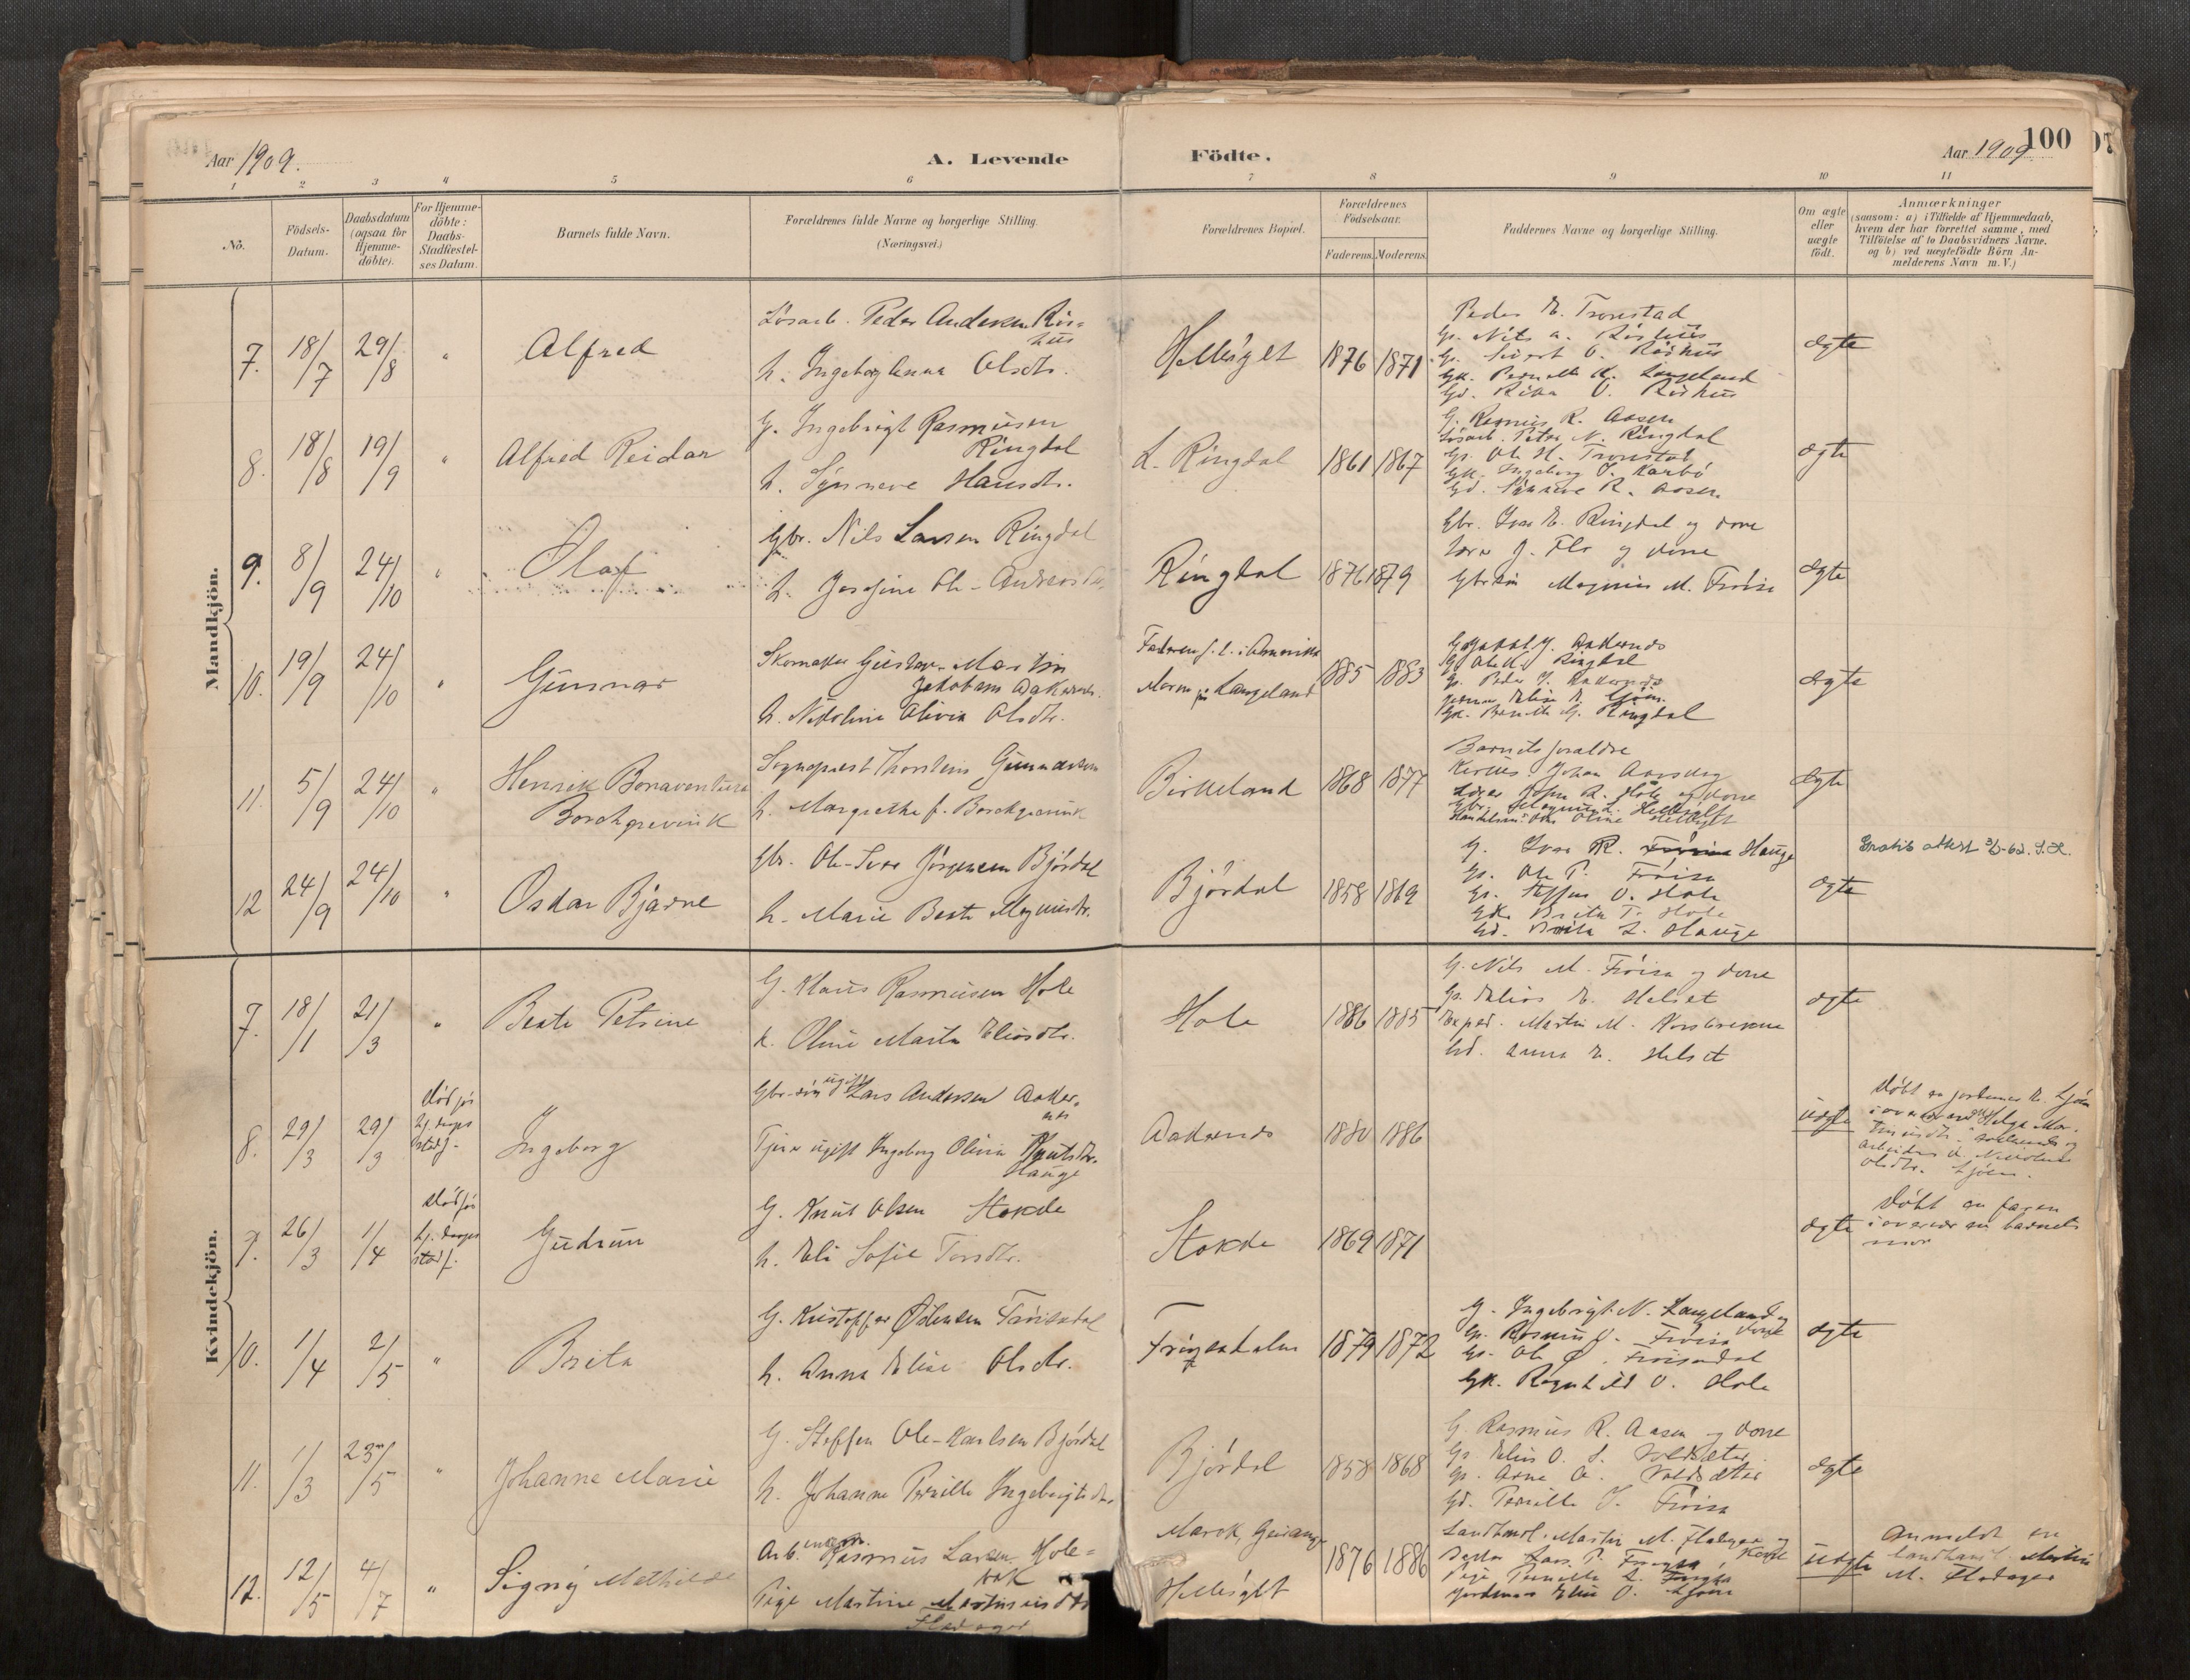 Aar 1909.
A. Levende
Födte.
Aar 1909
100
1 2 3 4 5 6 7 8 9 10 11
No.
Födsels-
Datum.
Daabsdatum
(ogsaa for
Hjemme-
döbte).
For Hjemme-
döbte:
Daabs-
Stadfæstel-
ses Datum.
Barnets fulde Navn.
Forældrenes fulde Navne og borgerlige Stilling.
(Næringsvei.)
Forældrenes Bopæl.
Forældrenes
Födselsaar.
Faderens. Moderens.
Faddernes Navne og borgerlige Stilling.
Om ægte
eller
uægte
födt.
Anmærkninger
(saasom: a) i Tilfælde af Hjemmedaab,
hvem der har forrettet samme, med
Tilföielse af to Daabsvidners Navne.
og b) ved uægtefödte Börn An-
melderens Navn m. V.)
Mandkjön.
7. 18/7 29/8 "
Alfred
Lösarb. Peder Andersen Rös-
hus
h. Ingeborg Anna Olsdtr.
Hellesylt
1876 1871
Peder E. Tronstad
Gs. Nils A. Röshus
Gs. Sivert O. Röshus
Gk. Pernille K. Langeland
Gd. Rika O. Röshus
ægte
8. 18/8 19/9 "
Alfred Reidar
G. Ingebrigt Rasmusen
Ringdal
h. Synneve Hansdtr.
L. Ringdal
1861 1867
G. Rasmus R. Aasen
Lösarb. Peter N. Ringdal
Gs. Ole H. Tronstad
Gk. Ingeborg J. Karbö
Gd. Synneve R. Aasen
ægte
9. 8/9 24/10 "
Olaf
Gbr. Nils Larsen Ringdal
h. Josefine Ole-Andreasdtr.
Ringdal
1876 1879
Gbr. Ivar E. Ringdal og kone
Lærer J. Flo og kone
Gbrsön Magnus M. Fröisa
ægte
10. 19/9 24/10 "
Gunnar
Skomaker Gustav-Martin
Jakobsen Aakernes.
h. Nikoline Olivia Olsdtr.
Faderen f. t. i Amerika
Moren på Langeland
1885 1883
G. Jakob J. Aakernes
G. Ole K. Ringdal
Gs. Peder J. Aakernes
Jordmor Elise O. Ljöen
Gk. Pernille G. Ringdal
ægte
11. 5/9 24/10 "
Henrik Bonaventura
Borchgrevink
Sogneprest Thorstein Gunnarson
h. Margrethe f. Borchgrevink
Birkeland
1868 1877
Barnets foraldre
Kirkes. Johan Aarseng
Lærer John R. Hole og kone
Gbr. Magnus L. Hellesylt
Handelsm. Ols Oline Hellesylt
ægte
12 24/9 24/10 "
Oskar Bjarne
Gbr. Ole-Ivar Jörgensen Björdal
h. Marie Beate Magnusdtr.
Björdal
1858 1869
G. Ivar R. Hauge
Gs. Ole P. Fröisa
Gs. Steffen O. Hole
Gk. Brita T. Hole
Gd. Brita L. Hauge
ægte
Gratis attest
Kvindekjön.
7. 18/1 21/3 "
Beate Petrine
G. Klaus Rasmusen Hole
h. Oline Marta Eliasdtr.
Hole
1886 1885
G. Nils M. Fröisa og kone
Gs. Elias E. Helset
Exped. Martin M. Korsbrekke
Gd. Anna E. Helset
ægte
8. 29/3 29/3
död för
hj. daaps
stadf.
Ingeborg
Gbr-sön ugift Lars Andersen Aaker-
nes
Tjen. ugift Ingeborg Olivia Knutsdtr.
Hauge
Aakernes
1880 1886
uægte
Döbt av jordmor E. Ljöen
9. 26/3 1/4
död för
hj. daaps
stadf.
Gudrun
G. Knut Olsen Stokke
h. Eli Sofie Torsdtr.
Stokke
1869 1871
ægte
Döbt av faren
i overvær av barnets
mor
10. 1/4 2/5 "
Brita
G. Kristoffer Ødensen Fröisadal
h. Anna Elise Olsdtr.
Fröysadalen
1879 1872
G. Ingebrigt N. Langeland og
kone
Gs. Rasmus J. Fröisa
Gs. Ole Ø. Fröisadal
Gk. Ragnhild O. Hole
ægte
11. 1/3 23/5 "
Johanne Marie
G. Steffen Ole-Karlsen Björdal
h. Johanne Pernille Ingebrigtsdtr.
Björdal
1858 1868
G. Rasmus R. Aasen og kone
Gs. Elias O. S. Voldsæter
Gs. Arne A. Voldsæter
Gd. Pernille J. Fröisa
ægte
12. 12/5 4/7 "
Signy Mathilde
Arb. ungk. Rasmus Larsen Hole-
Pige Martine Martinusdtr
Fladager
Marok, Geiranger
Hellesylt
1876 1886
Landhandl. Martin M. Flatager og
kone
Lars P. Fröysa
Pige Pernille L. Fröysa
Jordmor Elise O. Ljöen
uægte
Anmeldt av
landhandl. Martin
M. Flatager